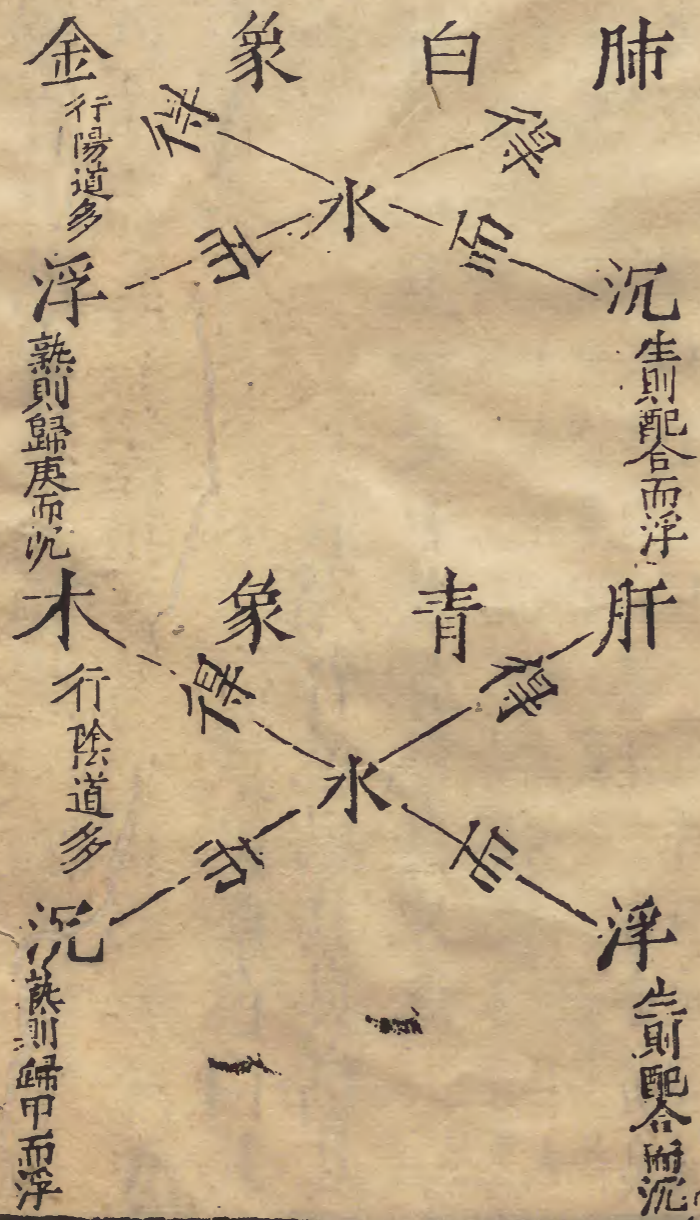 肺白象金
行陽道多
得
得
水
而
而
沉
生則配合而浮
浮
熟則歸庚而沉
肝青象木
行陰道多
得
得
水
而
而
浮
生則配合而沉
沉
熟則歸甲而浮